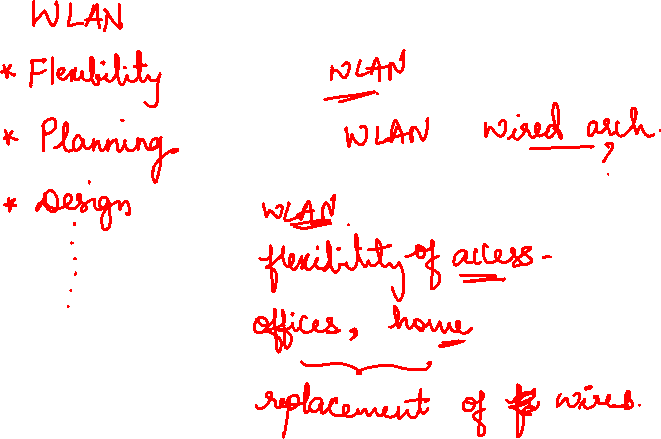 WLAN
* Flexibility
* Planning
* Design
WLAN
WLAN wired arch.
WLAN
flexibility of access -
offices, home
replacement of wires.